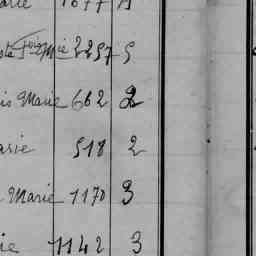 arie 1677 A
Marie 2257 5
is Marie 662 2
arie 518 2
Marie 1170 3
ie 1142 3